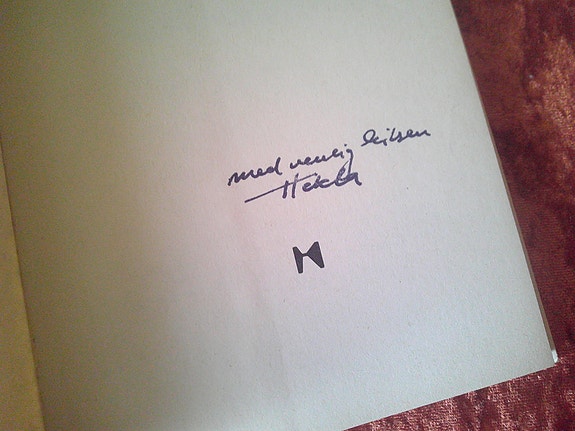 med venlig hilsen
Hekla